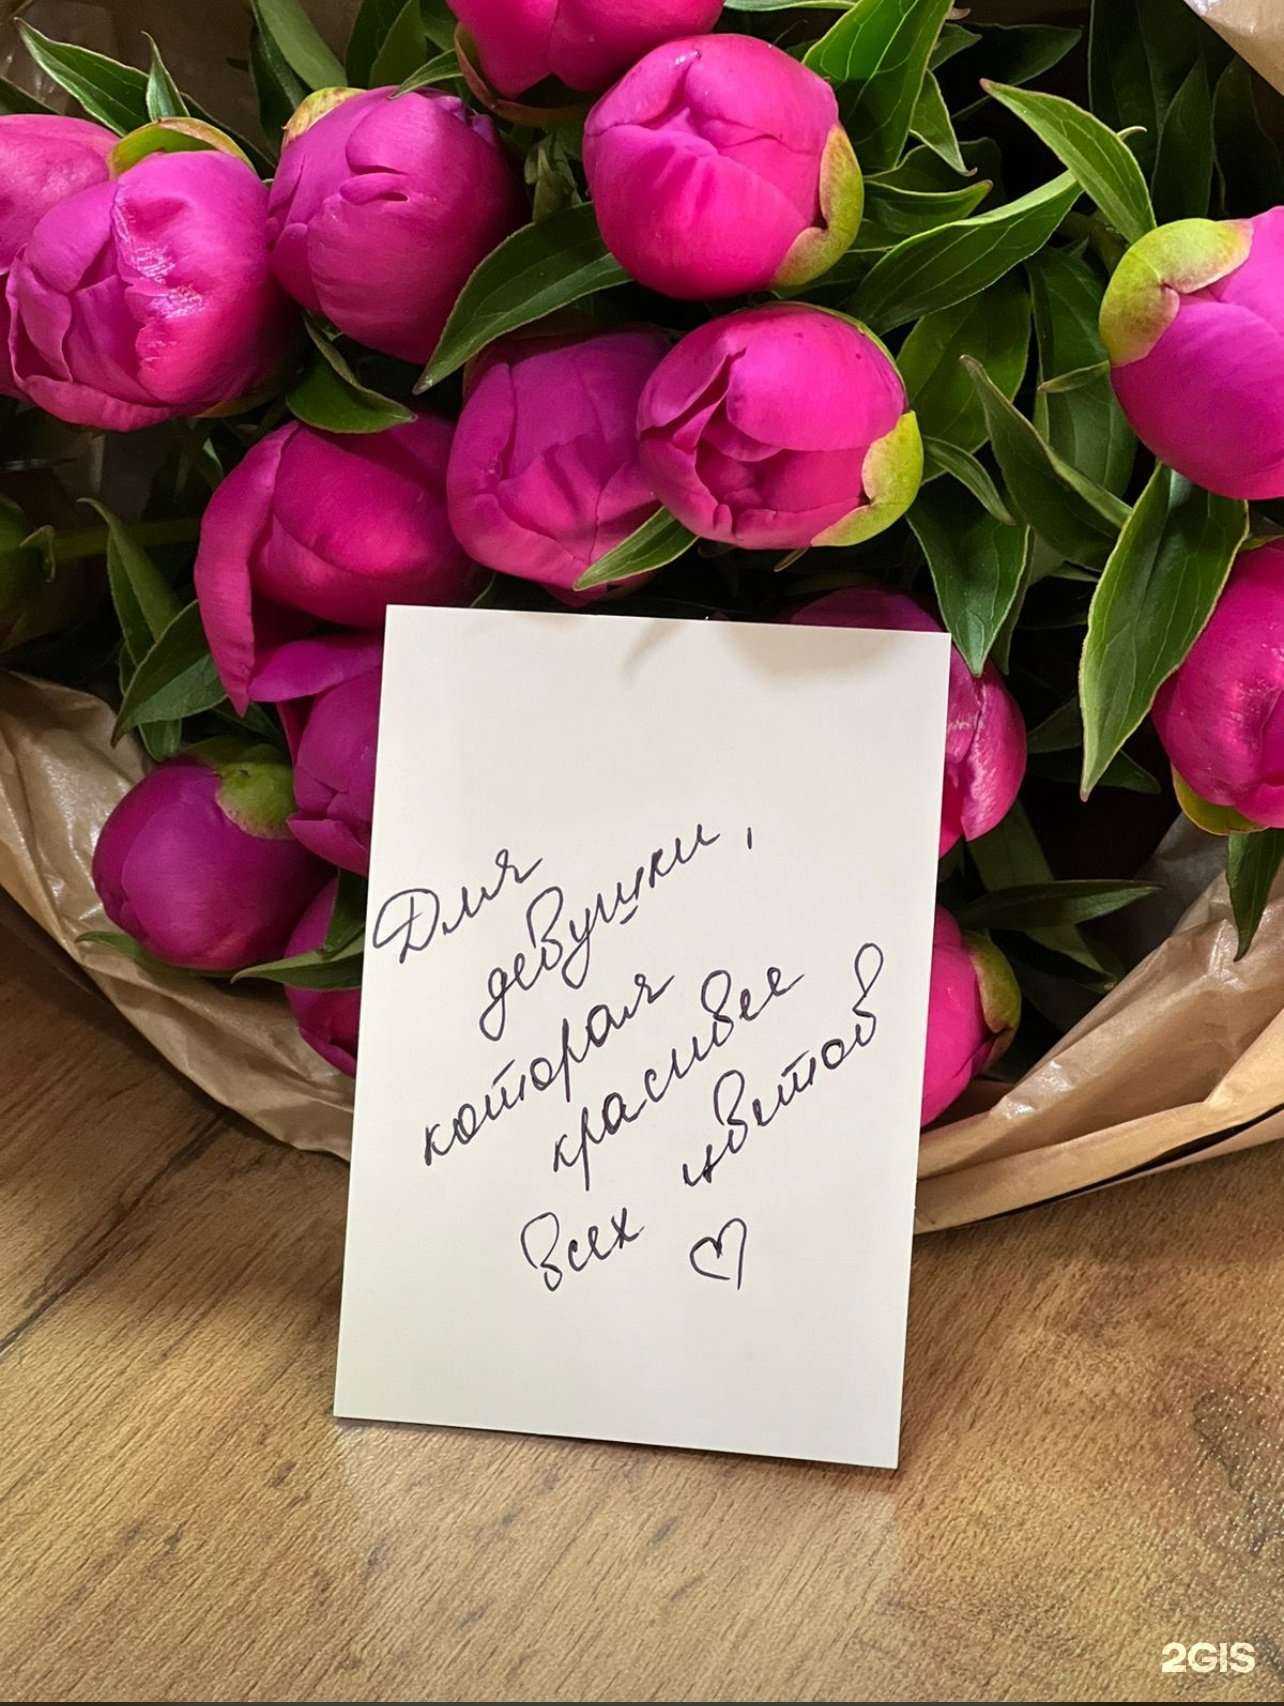 Для
девушки,
которая
красивее
всех цветов
2GIS